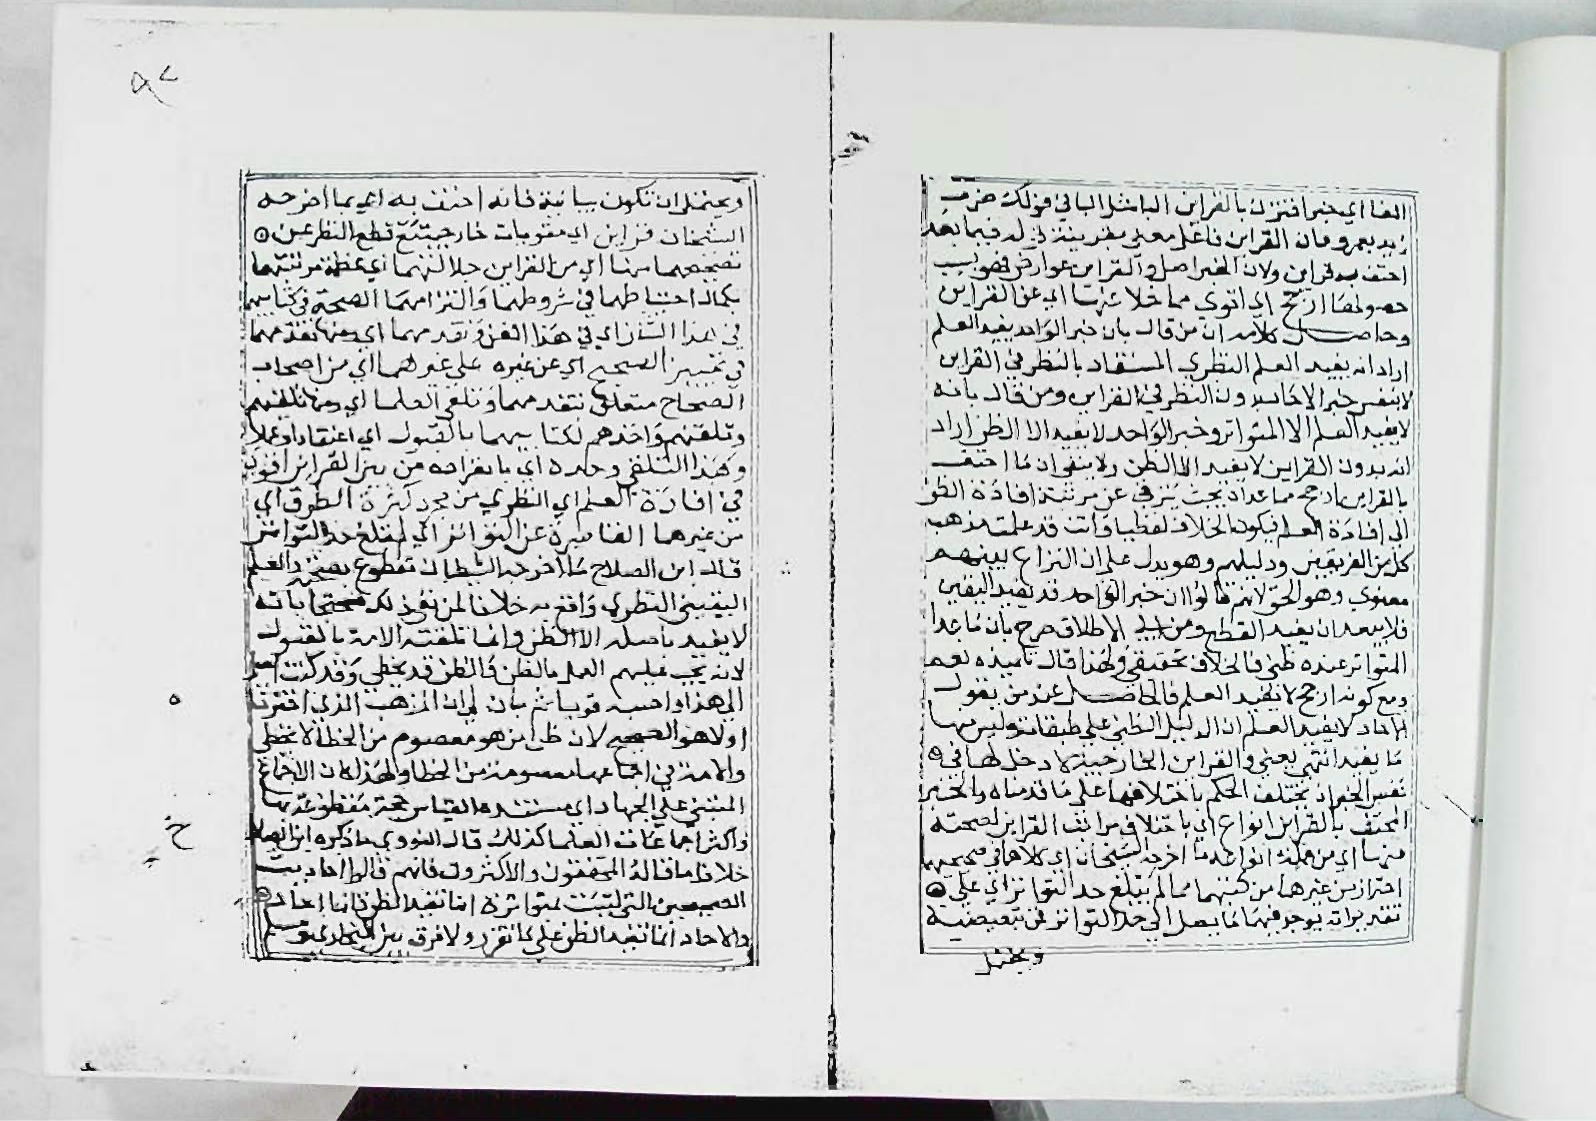 الفا اي خبرا اقترن بالقراين الباء مثل الباء في قولك ضرب
زيد بعمرو فان القراين فاعل معنى بقرينة قوله فيما بعد
احتف به قراين ولان الخبر اصل والقراين عوارض
ارجح اي اقوى مما خلا عنها اي عن القراين
وحاصل كلامه ان من قال بان خبر الواحد يفيد العلم
اراد انه يفيد العلم النظري المستفاد بالنظر في القراين
لا بنفس خبر الاحاد بدون النظر في القراين ومن قال بانه
لا يفيد العلم الا المتواتر وخبر الواحد لا يفيد الا الظن اراد
انه بدون القراين لا يفيد الا الظن ولا ينفي ان ما احتف
بالقراين ارجح مما عداه بحيث يترقى عن مرتبة افادة الظن
الى افادة العلم فيكون الخلاف لفظيا وانت قد علمت مذهب
كل من الفريقين ودليلهم وهو يدل على ان النزاع بينهم
معنوي وهو الحق لانهم قالوا ان خبر الواحد قد يفيد اليقين
فلا يبعد ان يفيد القطع ومن ابى الاطلاق صرح بان ما عدا
المتواتر عنده ظني فالخلاف تحقيقي ولهذا قال تلميذه نعم
ومع كونه ارجح لا يفيد العلم فالحاصل عند من يقول
الاحاد لا يفيد العلم ان الدليل الظني على طبقات وليس منها
ما يفيد انتهى يعني والقراين الخارجية لا دخل لها في
نفس الخبر وان يختلف الحكم باختلافها على ما قدمناه والخبر
المحتف بالقراين انواع اي باختلاف مراتب القراين لصحته
منها اي من جملة انواعه ما اخرجه الشيخان اي كلاهما في صحيحيهما
احتراز من غيرهما من كتبهما مما لم يبلغ حد التواتر اي على
تقدير انه يوجد فيهما ما يصل الى حد التواتر فمن تبعيضية
ويحتمل
ويحتمل ان تكون بيانية فانه احتف به اي بما اخرجه
الشيخان قراين اي مقويات خارجية مع قطع النظر عن
تصحيحهما منها اي من القراين جلالتهما اي عظمة مرتبتهما
بكمال احتياطهما في شروطهما والتزامهما الصحة في كتابيهما
في هذا الشان اي في هذا الفن وتقدمهما اي ومنها تقدمهما
في تمييز الصحيح اي عن غيره على غيرهما اي من اصحاب
الصحاح متعلق بتقدمهما وتلقي العلما اي ومنها تلقيهم
وتلقنهم واخذهم لكتابيهما بالقبول اي اعتقادا وعملا
وهذا التلقي وحده اي بانفراده من بين القراين اقوى
في افادة العلم اي النظري من مجرد كثرة الطرق اي
من غيرهما القاصرة عن التواتر اي لم تبلغ حد التواتر
قال ابن الصلاح ما اخرجه الشيخان مقطوع بصحته والعلم
اليقيني النظري واقع به خلافا لمن نفى ذلك محتجا بانه
لا يفيد باصله الا الظن وانما تلقته الامة بالقبول
لانه يجب عليهم العمل بالظن والظن قد يخطي وقد كنت اميل
الى هذا واحسبه قويا ثم بان لي ان المذهب الذي اخترناه
اولا هو الصحيح لان ظن من هو معصوم من الخطا لا يخطي
والامة في اجماعها معصومة من الخطا ولهذا كان الاجماع
المبتنى على الاجتهاد اي مستنده القياس حجة مقطوعة بها
واكثر اجماعات العلما كذلك قال النووي ما ذكره ابن الصلاح
خلاف ما قاله المحققون والاكثرون فانهم قالوا احاديث
الصحيحين التي ليست بمتواترة انما تفيد الظن فانها احاد
والاحاد انما تفيد الظن على ما تقرر ولا فرق بين البخاري